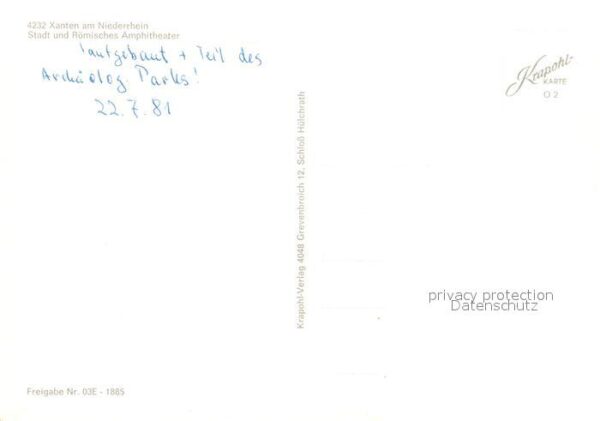 4232 Xanten am Niederrhein
Stadt und Römisches Amphitheater
! aufgebaut + Teil des
Archäolog. Parks!
22.7.81
Krapohl-
KARTE
O 2
Krapohl-Verlag 4048 Grevenbroich 12. Schloß Hülchrath
privacy protection
Datenschutz
Freigabe Nr. 03E - 1885